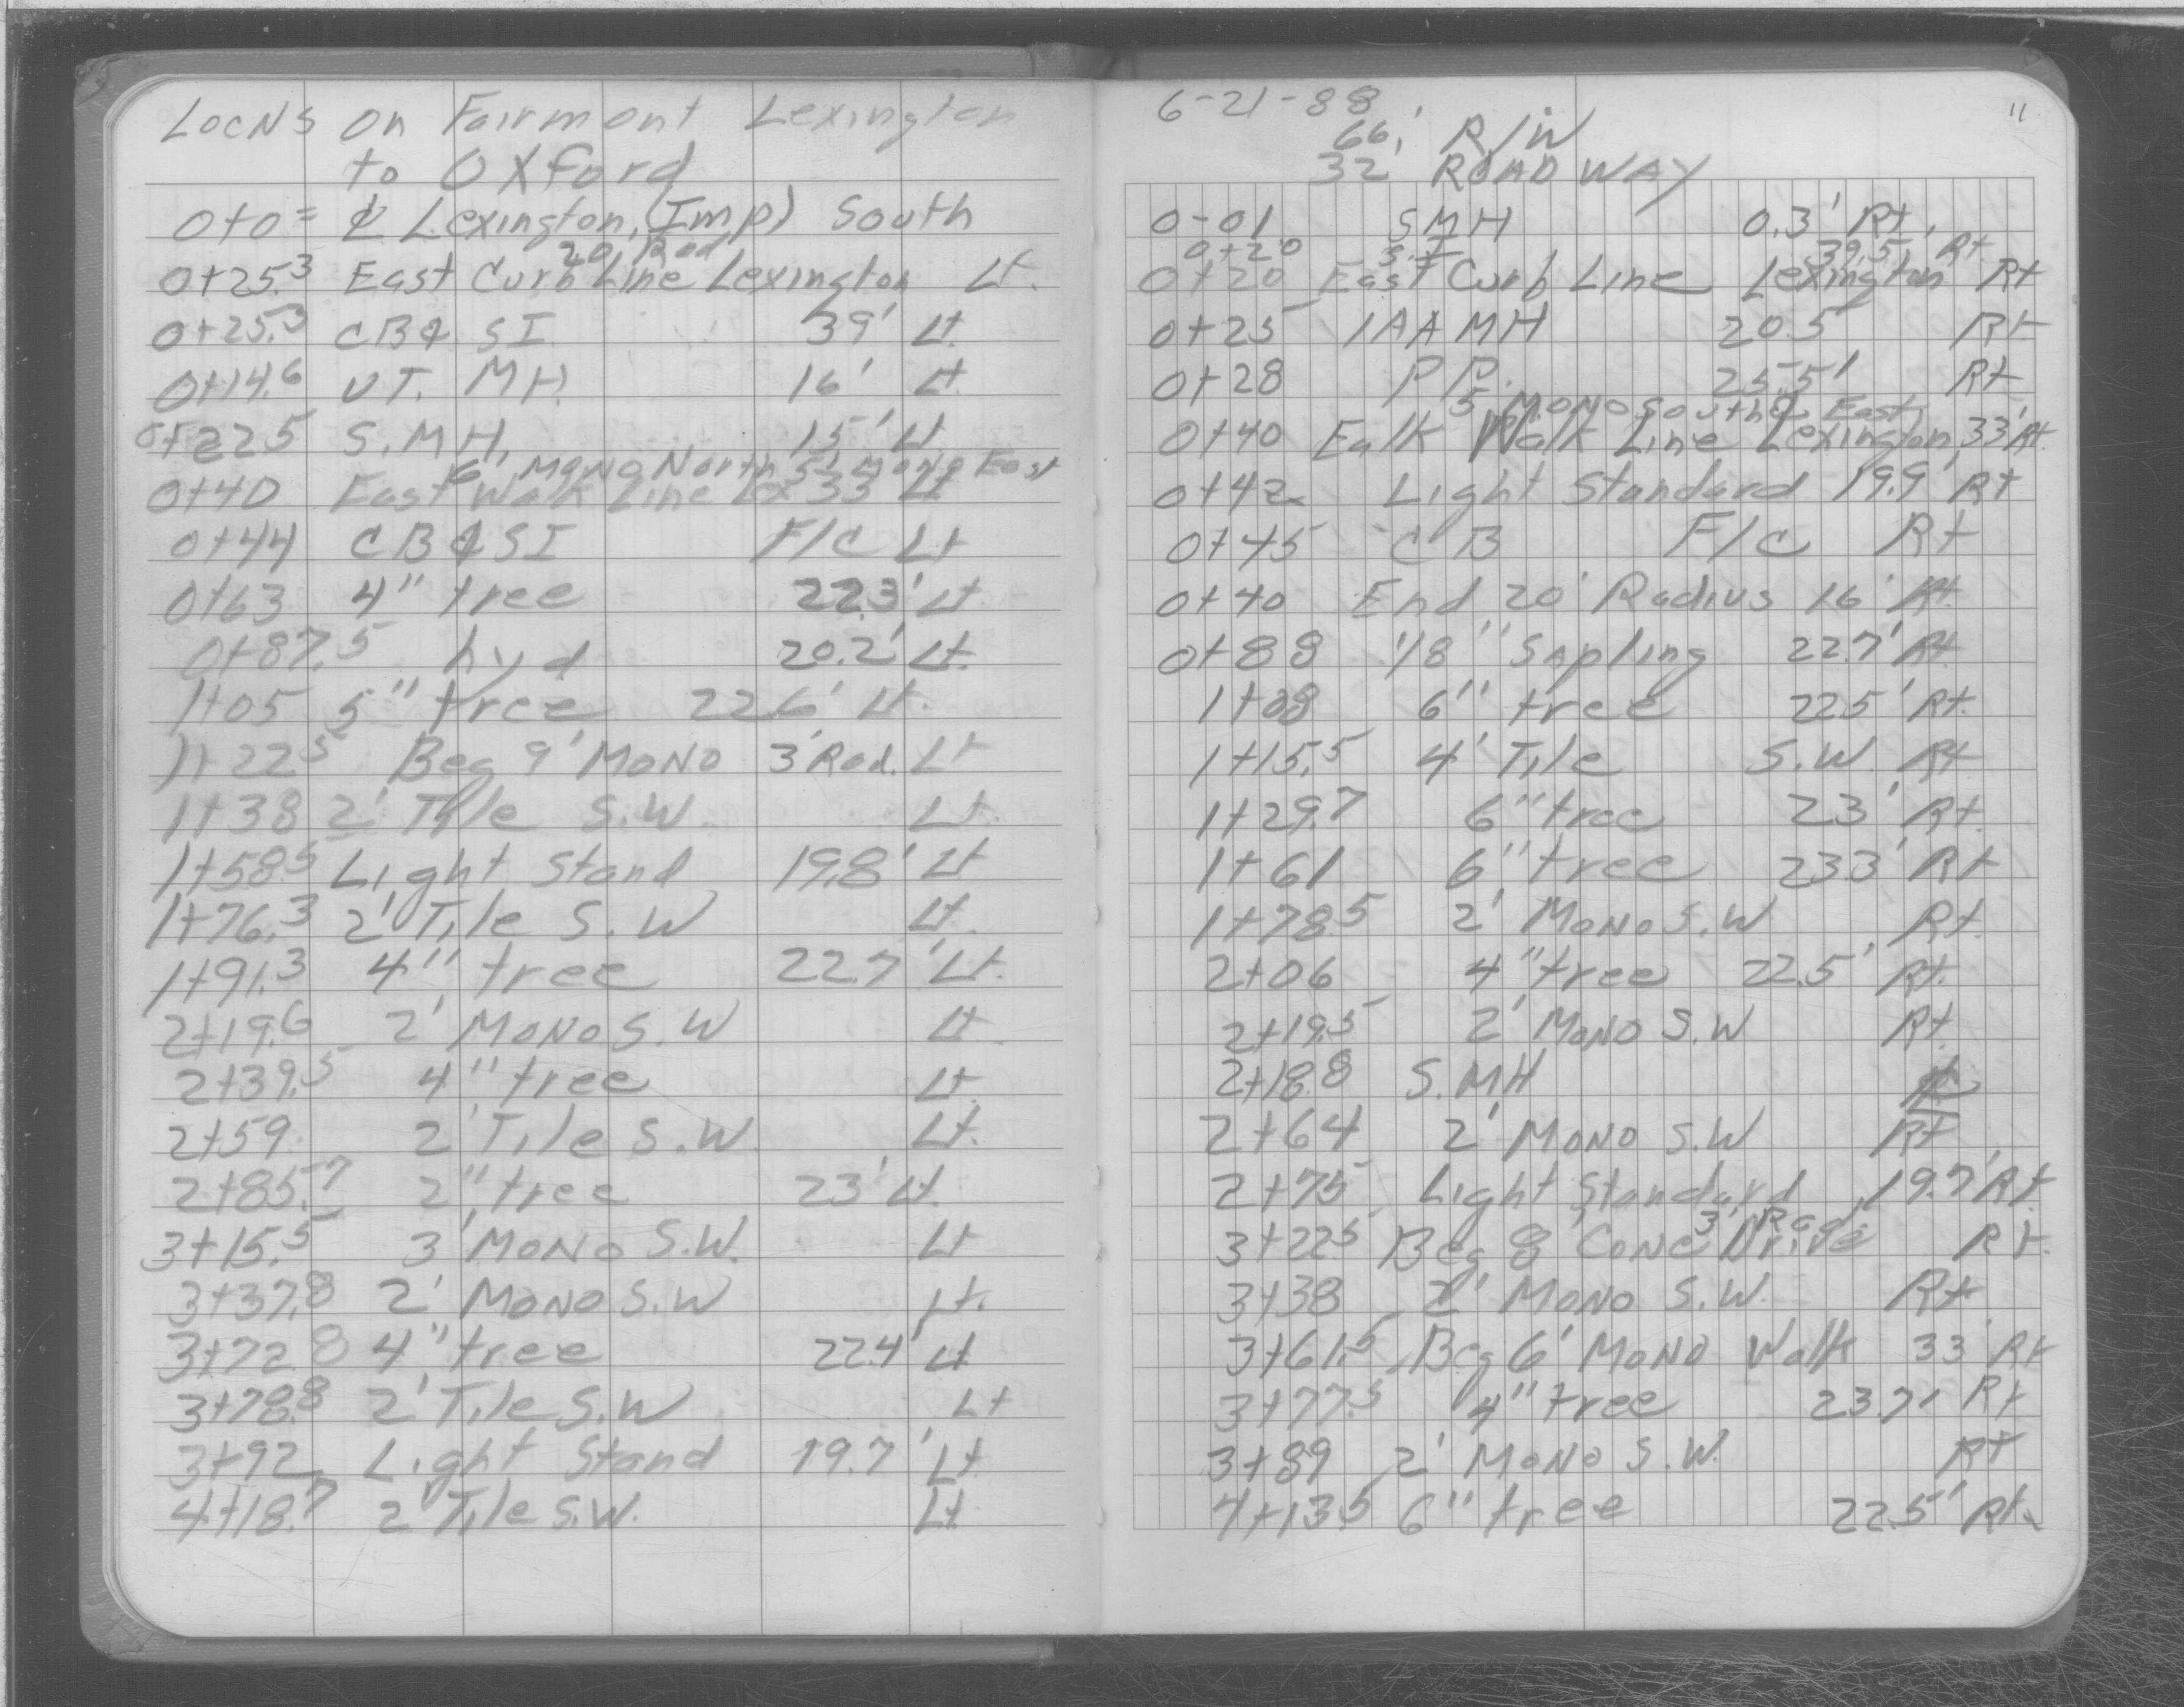 LOCNS on Fairmont Lexington
to Oxford
0+0= ℄ Lexington, (Imp) South
20' Rad
0+25.3 East Curb Line Lexington Lt.
0+25.3 CB & SI 39' Lt.
0+14.6 UT. MH. 16' Lt.
0+22.5 S.M.H. 15' Lt
6' Mono North 5' Mono East
0+40 East Walk Line Lex 33' Lt
0+44 CB & SI F/C Lt
0+63 4" tree 22.3' Lt.
0+87.5 hyd 20.2' Lt.
1+05 5" tree 22.6' Lt.
1+22.5 Beg 9' MONO 3' Rad. Lt
1+38 2' Tile S.W. Lt.
1+58.5 Light Stand 19.8' Lt
1+76.3 2' Tile S.W Lt.
1+91.3 4" tree 22.7' Lt.
2+19.6 2' MONO S.W Lt
2+39.5 4" tree Lt.
2+59 2' Tile S.W. Lt.
2+85.7 2" tree 23' Lt.
3+15.5 3' MONO S.W. Lt
3+37.8 2' MONO S.W Lt.
3+72.8 4" tree 22.4' Lt
3+78.8 2' Tile S.W Lt
3+92 Light Stand 19.7' Lt.
4+18.7 2' Tile S.W. Lt.
6-21-88
11
66' R/W
32' ROADWAY
0-01 SMH 0.3' Rt.
0+20 S.I 39.5 Rt
0+20 East Curb Line Lexington Rt
0+25 1AAMH 20.5 Rt
0+28 P.P. 25.5' Rt
5' Mono South & East
0+40 Ealk Walk Line Lexington 33' Rt.
0+42 Light Standard 19.9' Rt
0+45 CB F/C Rt
0+40 End 20' Radius 16' Rt.
0+88 1/8" Sapling 22.7' Rt.
1+08 6" tree 22.5' Rt.
1+15.5 4' Tile S.W. Rt.
1+29.7 6" tree 23' Rt.
1+61 6" tree 23.3' Rt
1+78.5 2' MONO S.W Rt.
2+06 4" tree 22.5' Rt.
2+19.5 2' MONO S.W Rt.
2+18.8 S.MH
2+64 2' MONO S.W Rt
2+75 Light Standard 19.7' Rt.
3' Rad
3+22.5 Beg 8' Conc Drive Rt.
3+38 2' MONO S.W. Rt
3+61.5 Beg 6' MONO Walk 33' Rt
3+77.5 4" tree 23.7' Rt
3+89 2' MONO S.W. Rt
4+13.5 6" tree 22.5' Rt.